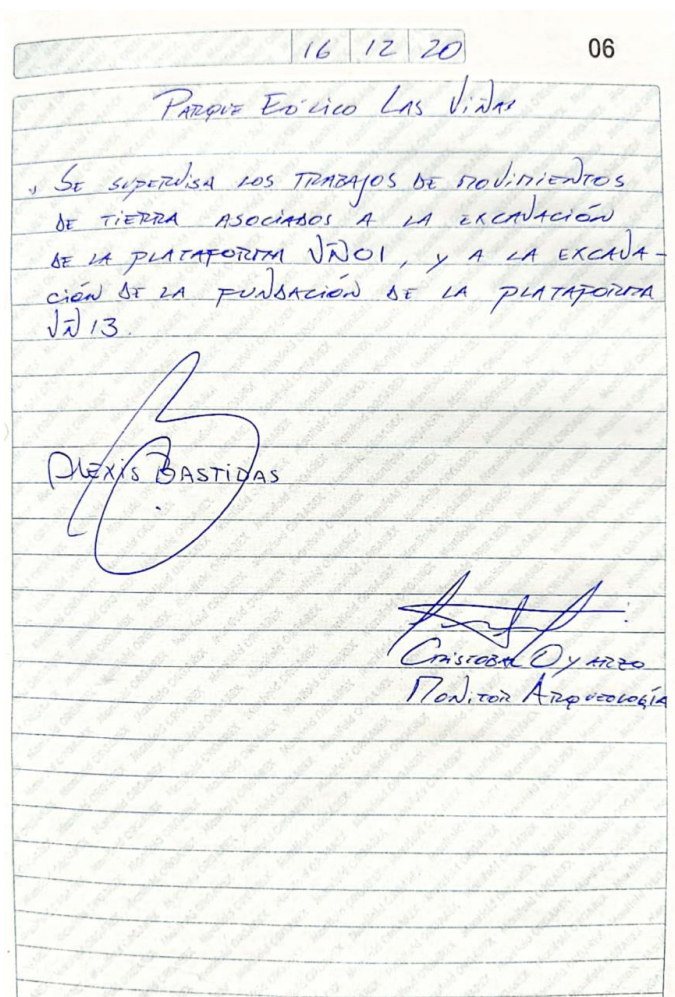 16 12 20
06
PARQUE EÓLICO LAS VIÑAS
SE SUPERVISA LOS TRABAJOS DE MOVIMIENTOS
DE TIERRA ASOCIADOS A LA EXCAVACIÓN
DE LA PLATAFORMA VÑ01, Y A LA EXCAVA-
CIÓN DE LA FUNDACIÓN DE LA PLATAFORMA
VÑ 13.
ALEXIS BASTIDAS
CRISTOBAL OYARZO
MONITOR ARQUEOLOGÍA